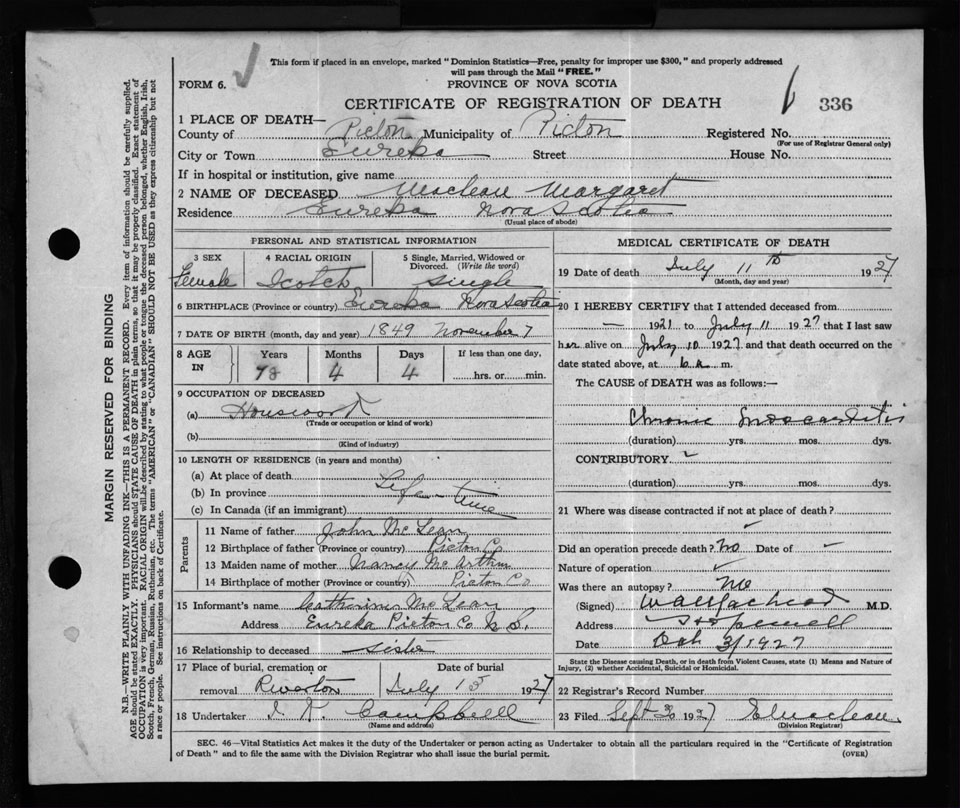 This form if placed in an envelope, marked "Dominion Statistics—Free, penalty for improper use $300," and properly addressed
will pass through the Mail "FREE."
FORM 6.
PROVINCE OF NOVA SCOTIA
CERTIFICATE OF REGISTRATION OF DEATH
336
1 PLACE OF DEATH—
County of Pictou Municipality of Pictou Registered No.
(For use of Registrar General only)
City or Town Eureka Street House No.
If in hospital or institution, give name
2 NAME OF DECEASED Maclean Margaret
Residence Eureka Nova Scotia
(Usual place of abode)
PERSONAL AND STATISTICAL INFORMATION
3 SEX Female
4 RACIAL ORIGIN Scotch
5 Single, Married, Widowed or Divorced. (Write the word) Single
6 BIRTHPLACE (Province or country) Eureka Nova Scotia
7 DATE OF BIRTH (month, day and year) 1849 November 7
8 AGE IN Years 78 Months 4 Days 4 If less than one day, hrs. or min.
9 OCCUPATION OF DECEASED
(a) Housework
(Trade or occupation or kind of work)
(b)
(Kind of industry)
10 LENGTH OF RESIDENCE (in years and months)
(a) At place of death
(b) In province Life-time
(c) In Canada (if an immigrant)
Parents
11 Name of father John McLean
12 Birthplace of father (Province or country) Pictou Co
13 Maiden name of mother Nancy McArthur
14 Birthplace of mother (Province or country) Pictou Co
15 Informant's name Catherine McLean
Address Eureka Pictou Co N.S.
16 Relationship to deceased sister
17 Place of burial, cremation or removal Riverton Date of burial July 13 1927
18 Undertaker Campbell
(Name and address)
MEDICAL CERTIFICATE OF DEATH
19 Date of death July 11th 1927
(Month, day and year)
20 I HEREBY CERTIFY that I attended deceased from
— 1921 to July 11 1927 that I last saw
her alive on July 10 1927 and that death occurred on the
date stated above, at 6 a m.
The CAUSE of DEATH was as follows:—
Chronic Myocarditis
(duration) yrs. mos. dys.
CONTRIBUTORY
(duration) yrs. mos. dys.
21 Where was disease contracted if not at place of death?
Did an operation precede death? No Date of —
Nature of operation
Was there an autopsy? No
(Signed) M.D.
Address Hopewell
Date Oct 3/1927
State the Disease causing Death, or in death from Violent Causes, state (1) Means and Nature of
Injury, (2) whether Accidental, Suicidal or Homicidal.
22 Registrar's Record Number
23 Filed Sept 1927
(Division Registrar)
SEC. 46—Vital Statistics Act makes it the duty of the Undertaker or person acting as Undertaker to obtain all the particulars required in the "Certificate of Registration
of Death" and to file the same with the Division Registrar who shall issue the burial permit. (OVER)
MARGIN RESERVED FOR BINDING
N.B.—WRITE PLAINLY WITH UNFADING INK—THIS IS A PERMANENT RECORD. Every item of information should be carefully supplied.
AGE should be stated EXACTLY. PHYSICIANS should STATE CAUSE OF DEATH in plain terms, so that it may be properly classified. Exact statement of
OCCUPATION is very important. RACIAL ORIGIN will be described by stating to what people or tongue the deceased person belonged, whether English, Irish,
Scotch, French, German, Russian, Ruthenian, etc. The terms "AMERICAN" or "CANADIAN" SHOULD NOT BE USED as they express citizenship but not
a race or people. See instructions on back of Certificate.